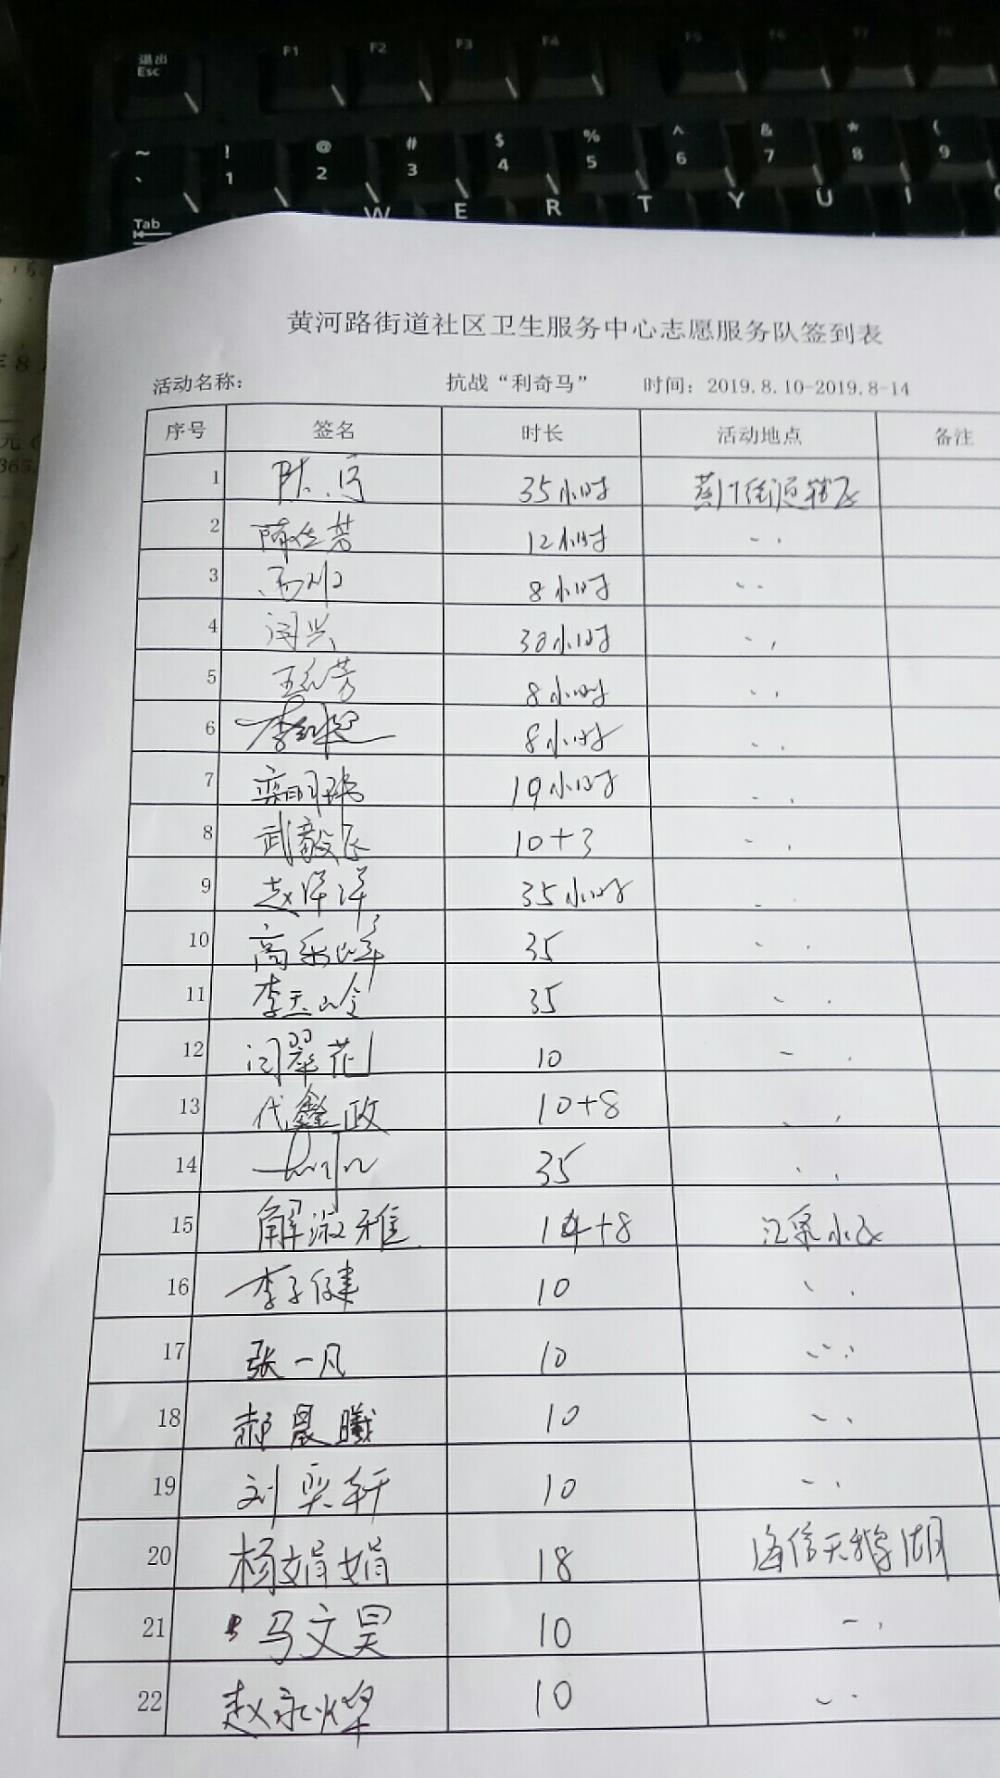 退出
Esc
F1 F2 F3 F4 F5 F6 F7 F8
~ ! @ # $ % ^ & * (
` 1 2 3 4 5 6 7 8 9
Tab W E R T Y U I
黄河路街道社区卫生服务中心志愿服务队签到表
活动名称: 抗战“利奇马” 时间: 2019.8.10-2019.8-14
序号 签名 时长 活动地点 备注
1 35小时
2 12小时
3 8小时
4 闫兴 30小时
5 8小时
6 8小时
7 19小时
8 武毅飞 10+3
9 赵洋洋 35小时
10 高乐峰 35
11 李玉岭 35
12 闫翠花 10
13 代鑫政 10+8
14 35
15 解淑雅 14+8
16 李子健 10
17 张一凡 10
18 郝晨曦 10
19 刘奕轩 10
20 杨娟娟 18 海信天鹅湖
21 马文昊 10
22 赵永烨 10